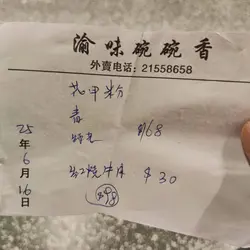 渝味碗碗香
外賣电话：21558658
花甲粉
毒
$68
25年6月16日
红烧牛体 $30
$98